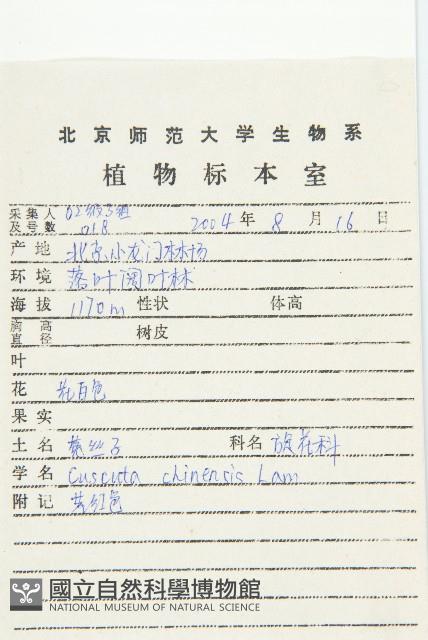 北京师范大学生物系
植物标本室
采集人及号数 02级3组 018 2004年8月16日
产地 北京小龙门林场
环境 落叶阔叶林
海拔 1170m 性状 体高
胸高直径 树皮
叶
花 乳白色
果实
土名 菟丝子 科名 旋花科
学名 Cuscuta chinensis Lam
附记 茎红色
國立自然科學博物館
NATIONAL MUSEUM OF NATURAL SCIENCE